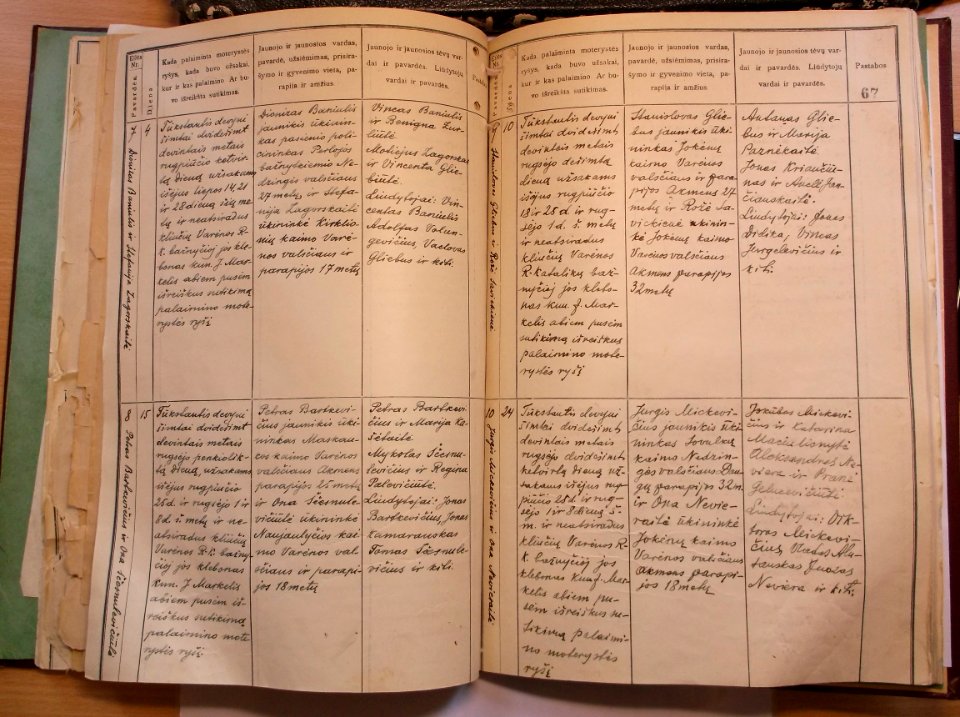 Eilės Nr.
Pavardės.
Diena
Kada palaiminta moterystės
ryšys, kada buvo užsakai,
kur ir kas palaimino Ar bu-
vo išreikšta sutikimas.
Jaunojo ir jaunosios vardas,
pavardė, užsiėmimas, prisira-
šymo ir gyvenimo vieta, pa-
rapija ir amžius
Jaunojo ir jaunosios tėvų var-
dai ir pavardės. Liudytojų
vardai ir pavardės.
7
Dionizas Baniulis ir Stefanija Lagorskaitė
4
Tūkstantis devyni
šimtai dvidešimt
devintais metais
rugpiučio ketvir-
tą dieną užsakams
išėjus liepos 14, 21
ir 28 dieną šių me-
tų ir neatsiradus
kliučių Varėnos R.
K. bažnyčioj jos kle-
bonas kun. J. Mar-
kelis abiem pusėm
išreiškus sutikimą
palaimino mote-
rystės ryšį
Dionizas Baniulis
jaunikis ūkinin-
kas pasienio poli-
cininkas Perlojos
bažnytkiemio Ne-
dzingės valsčiaus
27 metų ir Stefa-
nija Lagorskaitė
ūkininkė Kirklio-
nių kaimo Varė-
nos valsčiaus ir
parapijos 17 metų
Vincas Baniulis
ir Benigna
Motiejus Lagorskas
ir Vincenta Glie-
biūtė.
Liudytojai: Vin-
centas Baniulis
Adolfas Volun-
gevičius, Vaclovas
Gliebus ir kiti.
8
Petras Bartkevičius ir Ona Sčesnulevičiūtė
15
Tūkstantis devyni
šimtai dvidešimt
devintais metais
rugsėjo penkiolik-
tą dieną, užsakams
išėjus rugpiučio
25 d. ir rugsėjo 1 ir
8 d. š. metų ir ne-
atsiradus kliučių
Varėnos R. K. bažny-
čioj jos klebonas
kun. J. Markelis
abiem pusėm iš-
reiškus sutikimą
palaimino mote-
rystės ryšį
Petras Bartkevi-
čius jaunikis ūki-
ninkas Maskau-
cos kaimo Varėnos
valsčiaus Akmens
parapijos 25 metų
ir Ona Sčesnule-
vičiūtė ūkininkė
Naujaulyčios kai-
mo Varėnos val-
sčiaus ir parapi-
jos 18 metų
Petras Bartkevi-
čius ir Marija
Mykolas Sčesnu-
levičius ir Regina
Pelevičiūtė.
Liudytojai: Jonas
Bartkevičius, Jonas
Kamarauskas
Tomas Sčesnule-
vičius ir kiti.
Eilės Nr.
Pavardės
Diena
Kada palaiminta moterystės
ryšys, kada buvo užsakai,
kur ir kas palaimino Ar bu-
vo išreikšta sutikimas.
Jaunojo ir jaunosios vardas,
pavardė, užsiėmimas, prisira-
šymo ir gyvenimo vieta, pa-
rapija ir amžius
Jaunojo ir jaunosios tėvų var-
dai ir pavardės. Liudytojų
vardai ir pavardės.
Pastabos
67
9
Stanislovas Gliebus ir Rožė Savickienė
10
Tūkstantis devyni
šimtai dvidešimt
devintais metais
rugsėjo dešimtą
dieną užsakams
išėjus rugpiučio
18 ir 28 d. ir rug-
sėjo 1 d. š. metų
ir neatsiradus
kliučių Varėnos
R. katalikų baž-
nyčioj jos klebo-
nas kun. J. Mar-
kelis abiem pusėm
sutikimą išreiškus
palaimino mote-
rystės ryšį
Stanislovas Glie-
bus jaunikis ūki-
ninkas Jokėnų
kaimo Varėnos
valsčiaus ir para-
pijos Akmens 27
metų ir Rožė Sa-
vickienė ūkinin-
kė Jokėnų kaimo
Varėnos valsčiaus
Akmens parapijos
32 metų
Antanas Glie-
bus ir Marija
Paznėkaitė
Jonas Kriaučiū-
nas ir
Liudytojai: Jonas
Didika, Vincas
Jurgelevičius ir
kiti.
10
Jurgis Mickevičius ir Ona Nevieraitė
24
Tūkstantis devyni
šimtai dvidešimt
devintais metais
rugsėjo dvidešimt
ketvirtą dieną už-
sakams išėjus rug-
piučio 28 d. ir rug-
sėjo 1 ir 8 dieną š.
m. ir neatsiradus
kliučių Varėnos R.
K. bažnyčioj jos
klebonas kun. J. Mar-
kelis abiem pu-
sėm išreiškus su-
tikimą palaimi-
no moterystės
ryšį
Jurgis Mickevi-
čius jaunikis ūki-
ninkas
kaimo Nedzin-
gės valsčiaus Dau-
gų parapijos 32 m.
ir Ona Nevie-
raitė ūkininkė
Jokėnų kaimo
Varėnos valsčiaus
Akmens parapi-
jos 18 metų
Jokūbas Mickevi-
čius ir Katarina
Aleksandras Ne-
viera ir
Liudytojai: Vik-
toras Mickevi-
čius, Vladas Ma-
tauskas Juozas
Neviera ir kiti.